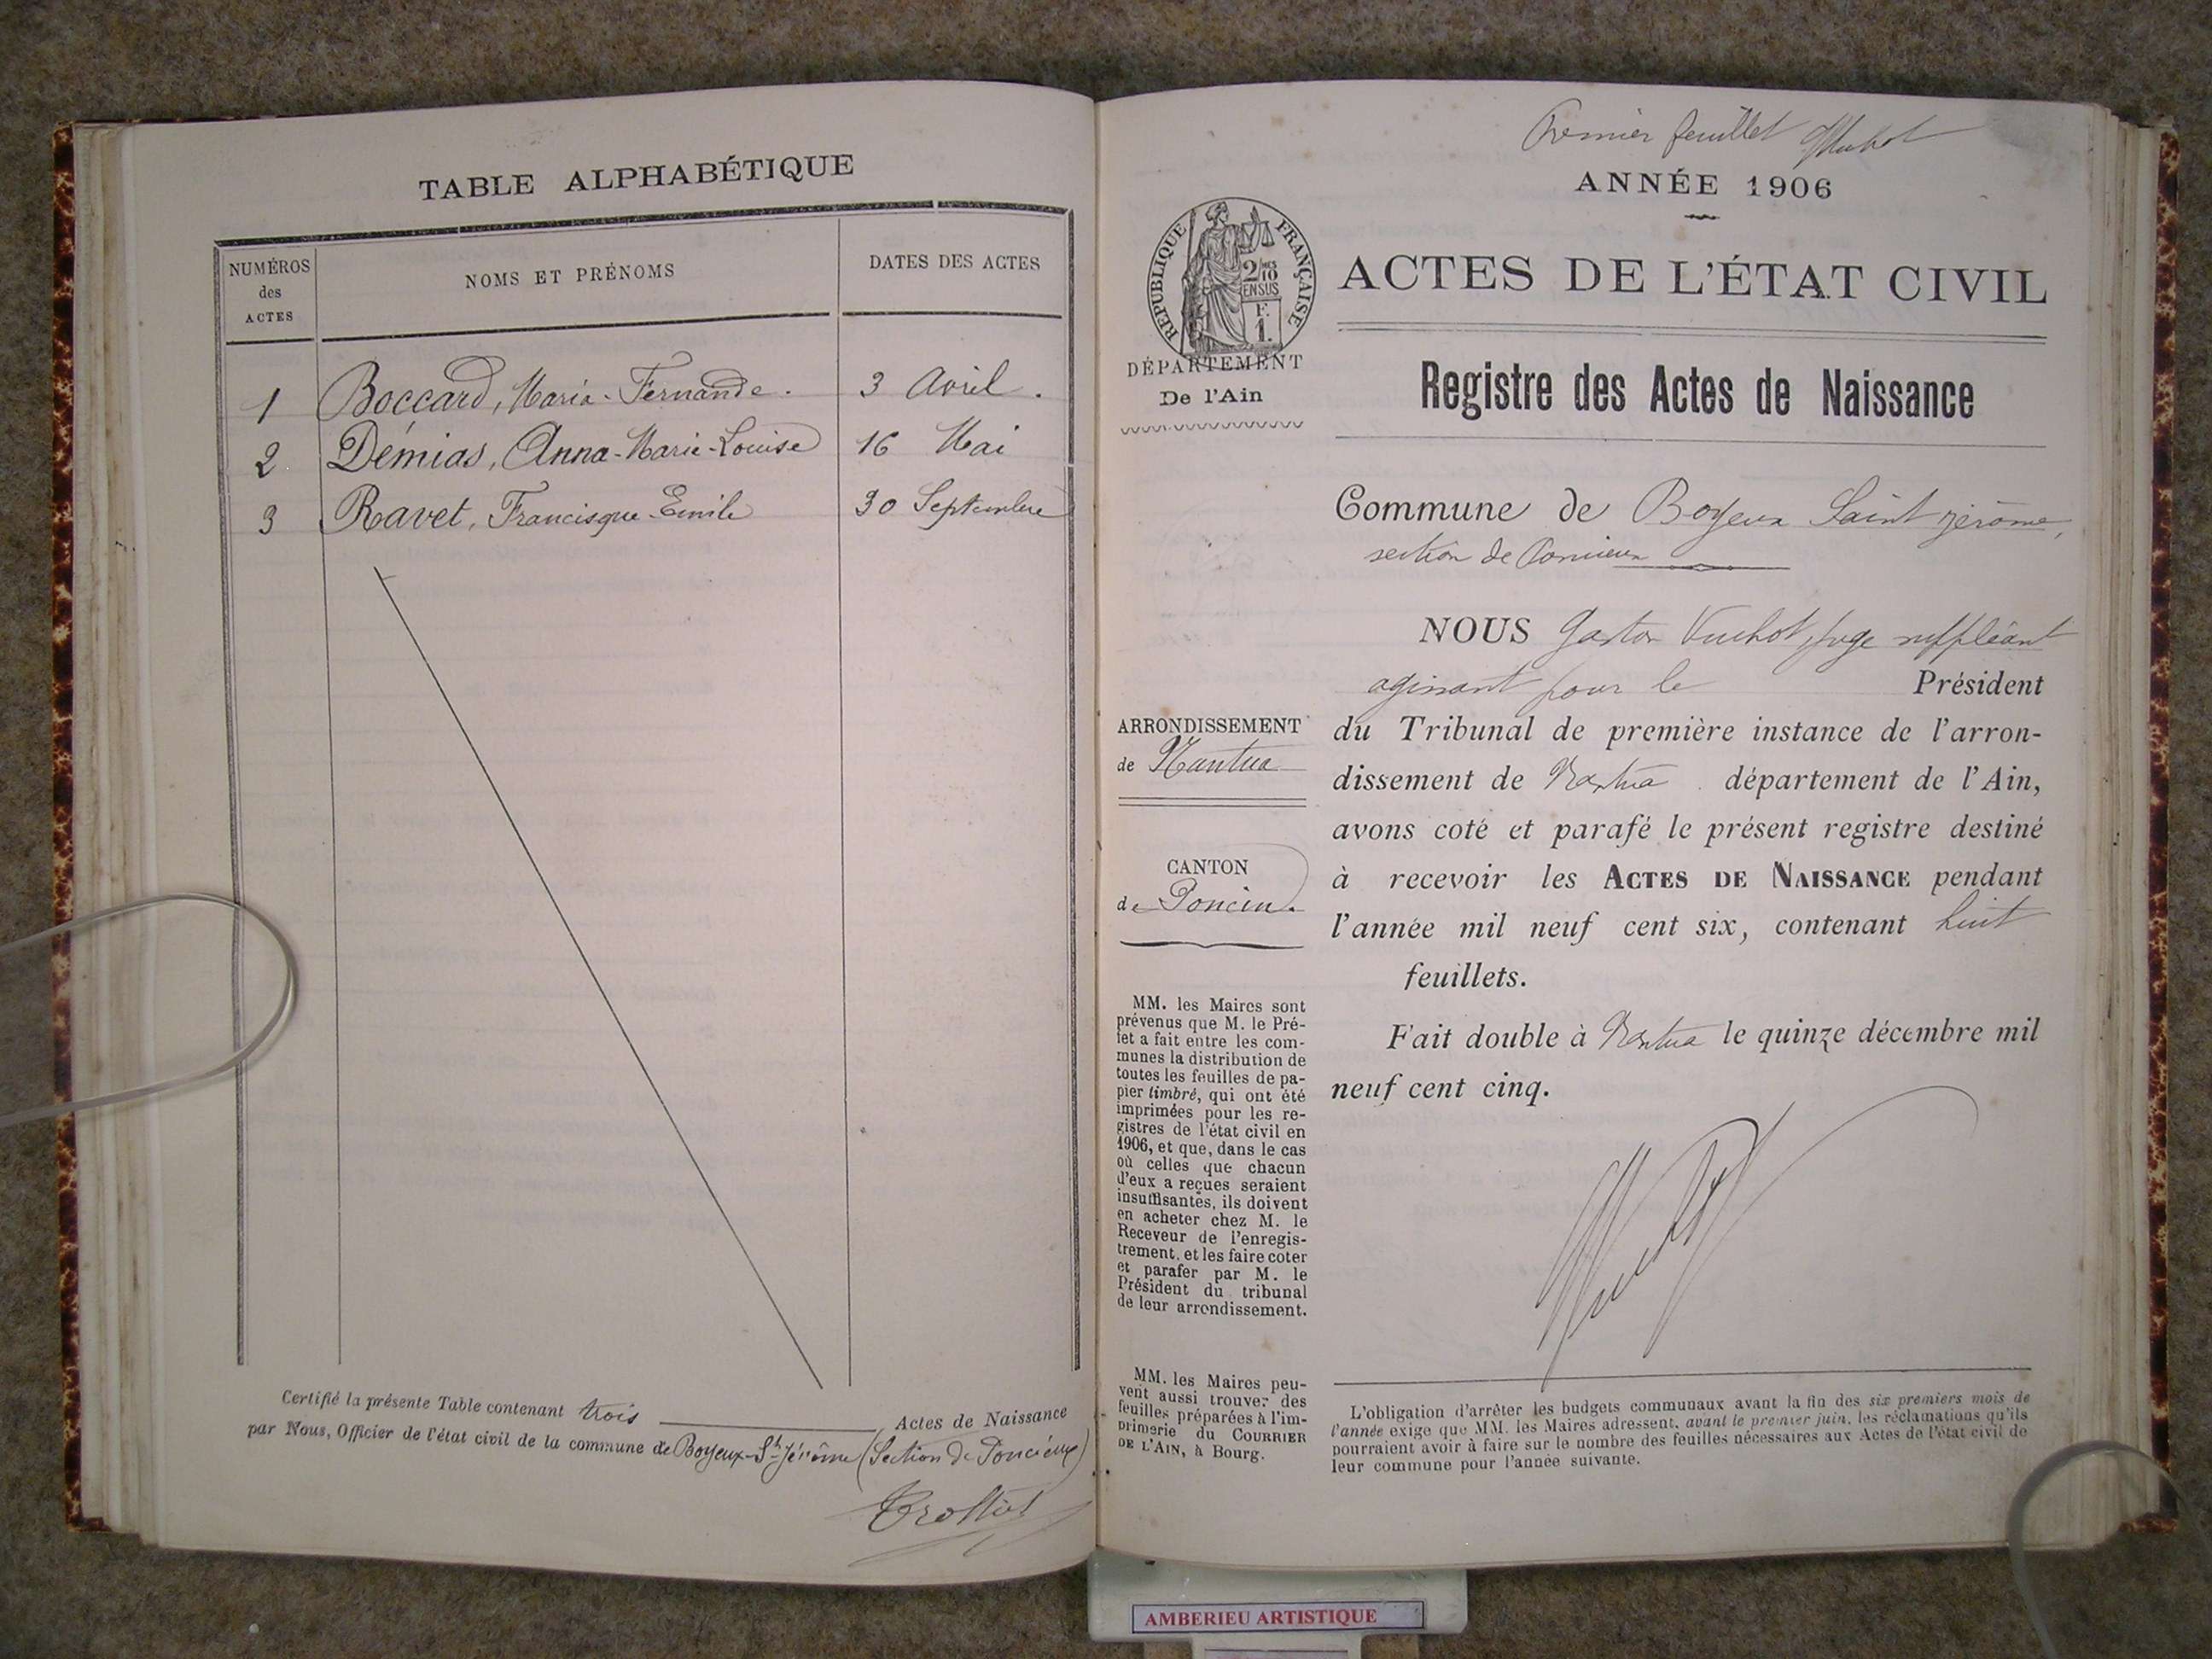 TABLE ALPHABÉTIQUE
NUMÉROS
des
ACTES
NOMS ET PRÉNOMS
DATES DES ACTES
1 Boccard, Maria-Fernande. 3 Avril.
2 Démias, Anna-Marie-Louise 16 Mai
3 Ravet, Francisque-Emile 30 Septembre
Certifié la présente Table contenant trois Actes de Naissance
par Nous, Officier de l'état civil de la commune de Boyeux-St-Jérôme (Section de Poncieux)
Premier feuillet
ANNÉE 1906
RÉPUBLIQUE FRANÇAISE
2/10
EN SUS
F.
1.
DÉPARTEMENT
De l'Ain
ACTES DE L'ÉTAT CIVIL
Registre des Actes de Naissance
Commune de Boyeux Saint jérôme,
section de Poncieux
ARRONDISSEMENT
de Nantua
CANTON
de Poncin.
MM. les Maires sont
prévenus que M. le Pré-
fet a fait entre les com-
munes la distribution de
toutes les feuilles de pa-
pier timbré, qui ont été
imprimées pour les re-
gistres de l'état civil en
1906, et que, dans le cas
où celles que chacun
d'eux a reçues seraient
insuffisantes, ils doivent
en acheter chez M. le
Receveur de l'enregis-
trement, et les faire coter
et parafer par M. le
Président du tribunal
de leur arrondissement.
MM. les Maires peu-
vent aussi trouver des
feuilles préparées à l'im-
primerie du COURRIER
DE L'AIN, à Bourg.
NOUS Gaston Vuchot, juge suppléant
agissant pour le Président
du Tribunal de première instance de l'arron-
dissement de Nantua département de l'Ain,
avons coté et parafé le présent registre destiné
à recevoir les ACTES DE NAISSANCE pendant
l'année mil neuf cent six, contenant huit
feuillets.
Fait double à Nantua le quinze décembre mil
neuf cent cinq.
L'obligation d'arrêter les budgets communaux avant la fin des six premiers mois de
l'année exige que MM. les Maires adressent, avant le premier juin, les réclamations qu'ils
pourraient avoir à faire sur le nombre des feuilles nécessaires aux Actes de l'état civil de
leur commune pour l'année suivante.
AMBERIEU ARTISTIQUE